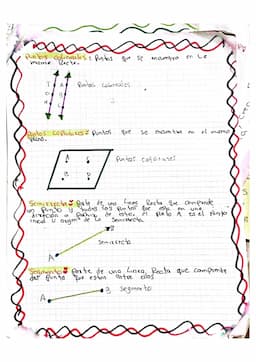 Puntos colineales: Puntos que se encuentra en la
misma Recta.
Puntos colineales
Puntos coplanares: Puntos que se encuentra en el mismo
plano.
A
B
D
Puntos coplanares
Semirrecta: Parte de una línea Recta que comprende
un punto y todos los puntos que están en una
dirección a partir de este, el punto A es el punto
inicial u origen de la semirrecta
A
B
Semirrecta
Segmento: Parte de una línea Recta que comprende
dos puntos que están entre ellos
A
B
Segmento